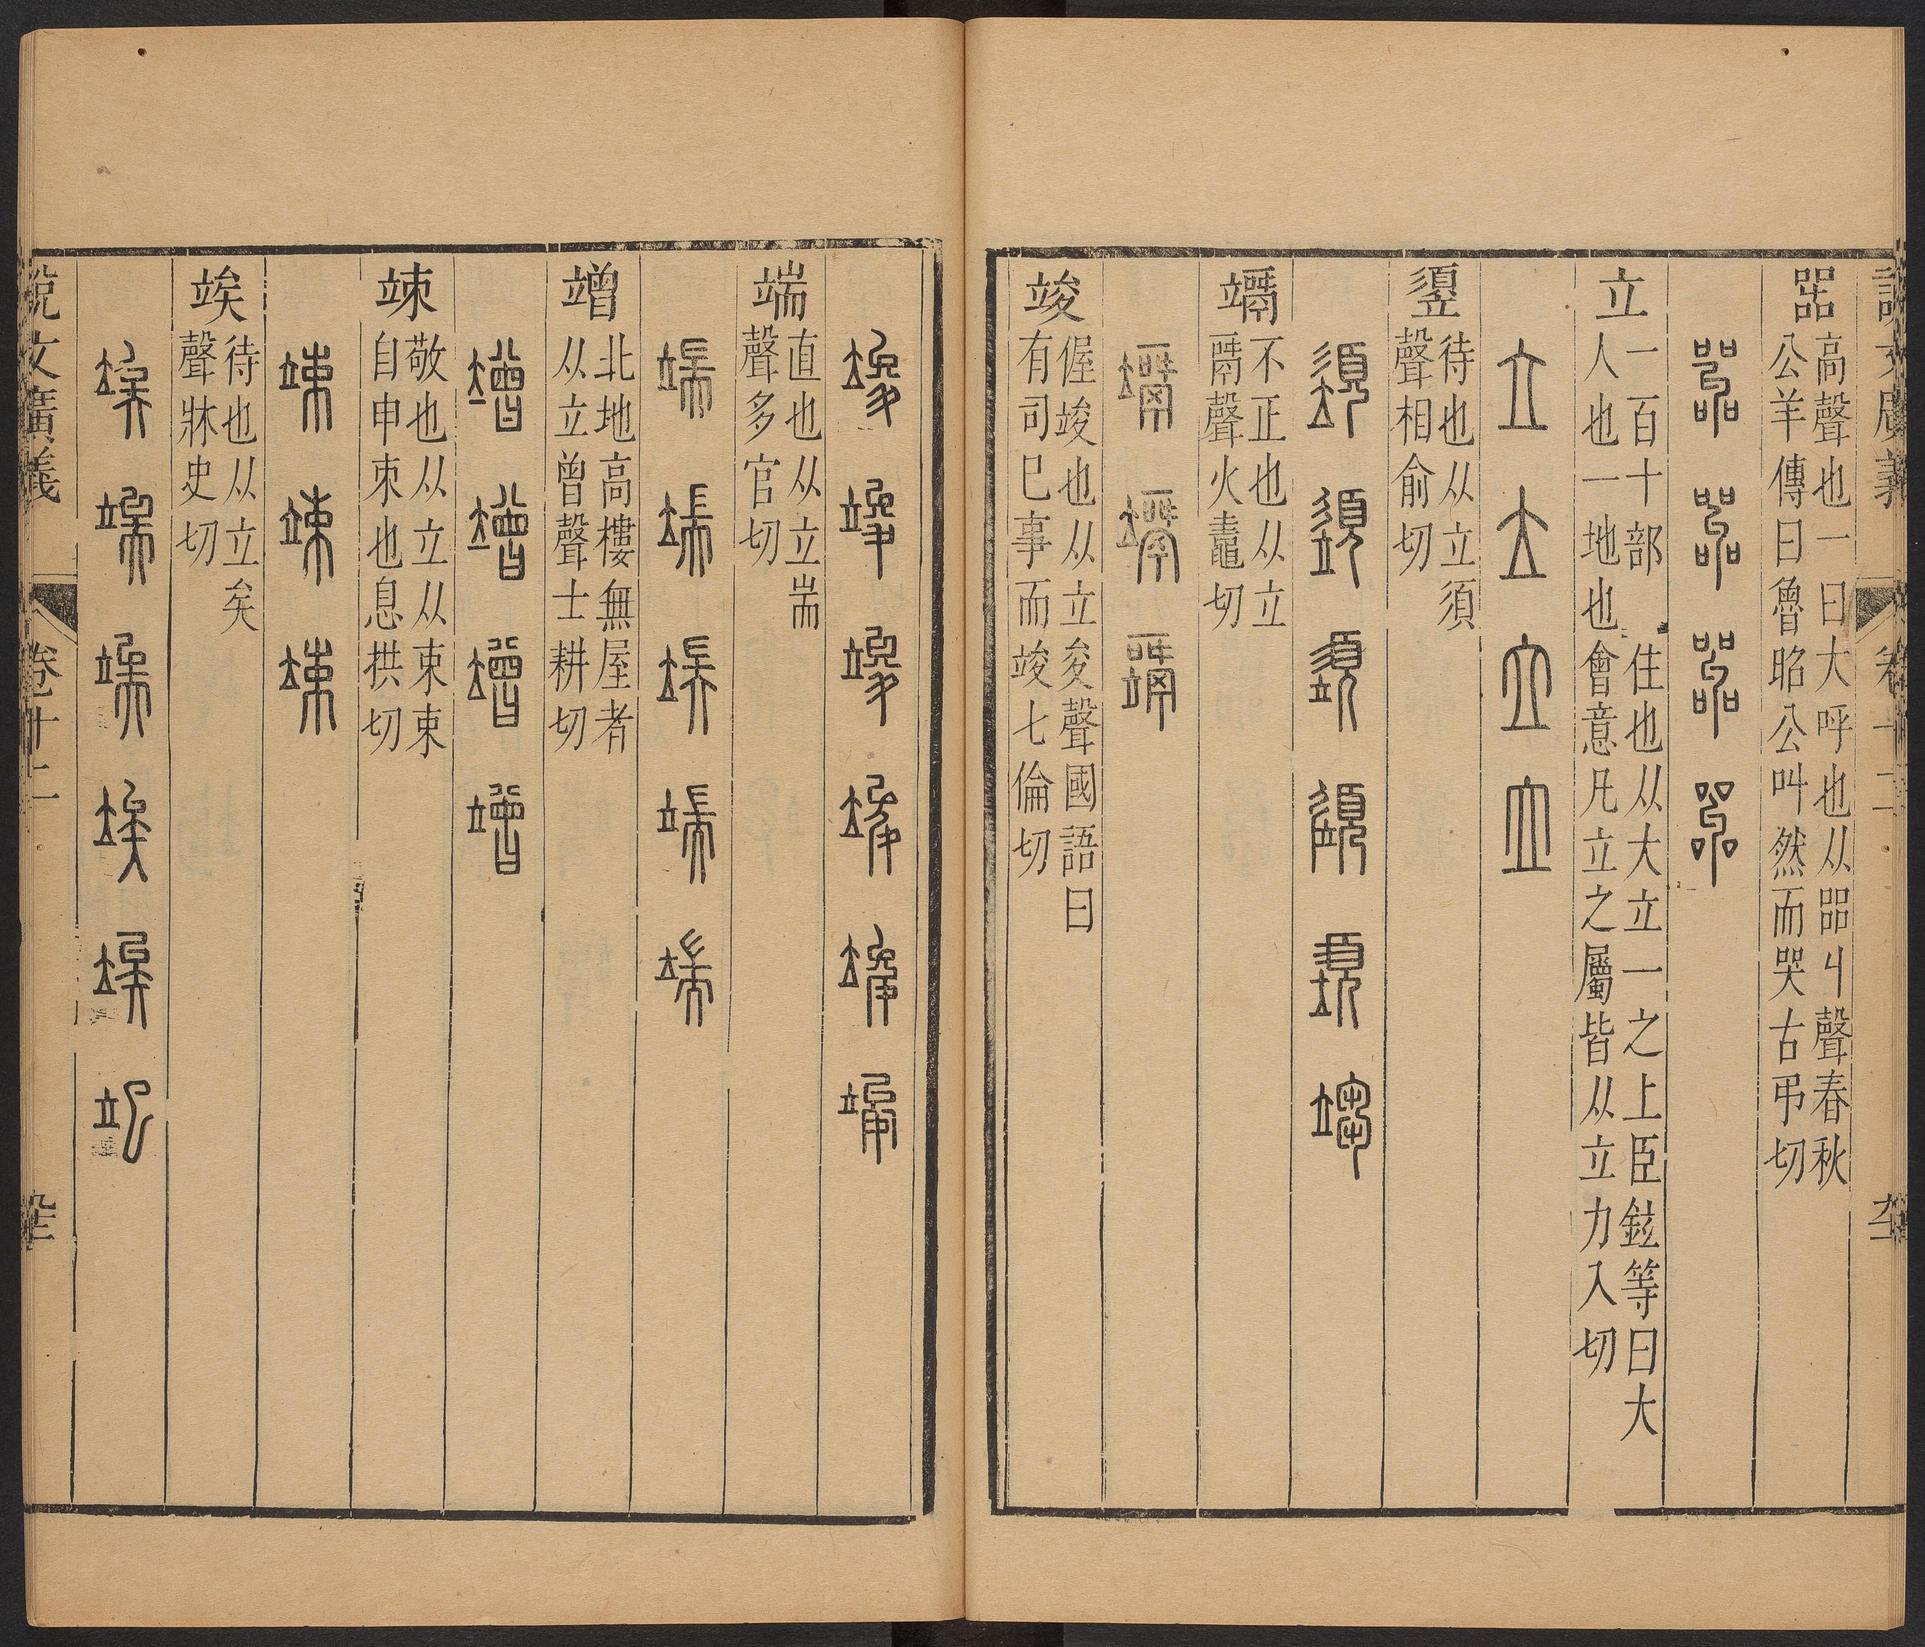 說文廣義 卷十二
嘂
高聲也一曰大呼也从㗊丩聲春秋
公羊傳曰魯昭公叫然而哭古弔切
立
一百十部 住也从大立一之上臣鉉等曰大
人也一地也會意凡立之屬皆从立力入切
立 立 立 立
䇓
待也从立須
聲相俞切
竵
不正也从立
𤯍聲火鼃切
竣
偓竣也从立夋聲國語曰
有司已事而竣七倫切
端
直也从立耑
聲多官切
竲
北地高樓無屋者
从立曾聲士耕切
竲 竲 竲 竲
竦
敬也从立从束束
自申束也息拱切
竦 竦 竦
竢
待也从立矣
聲牀史切
說文廣義 卷十二